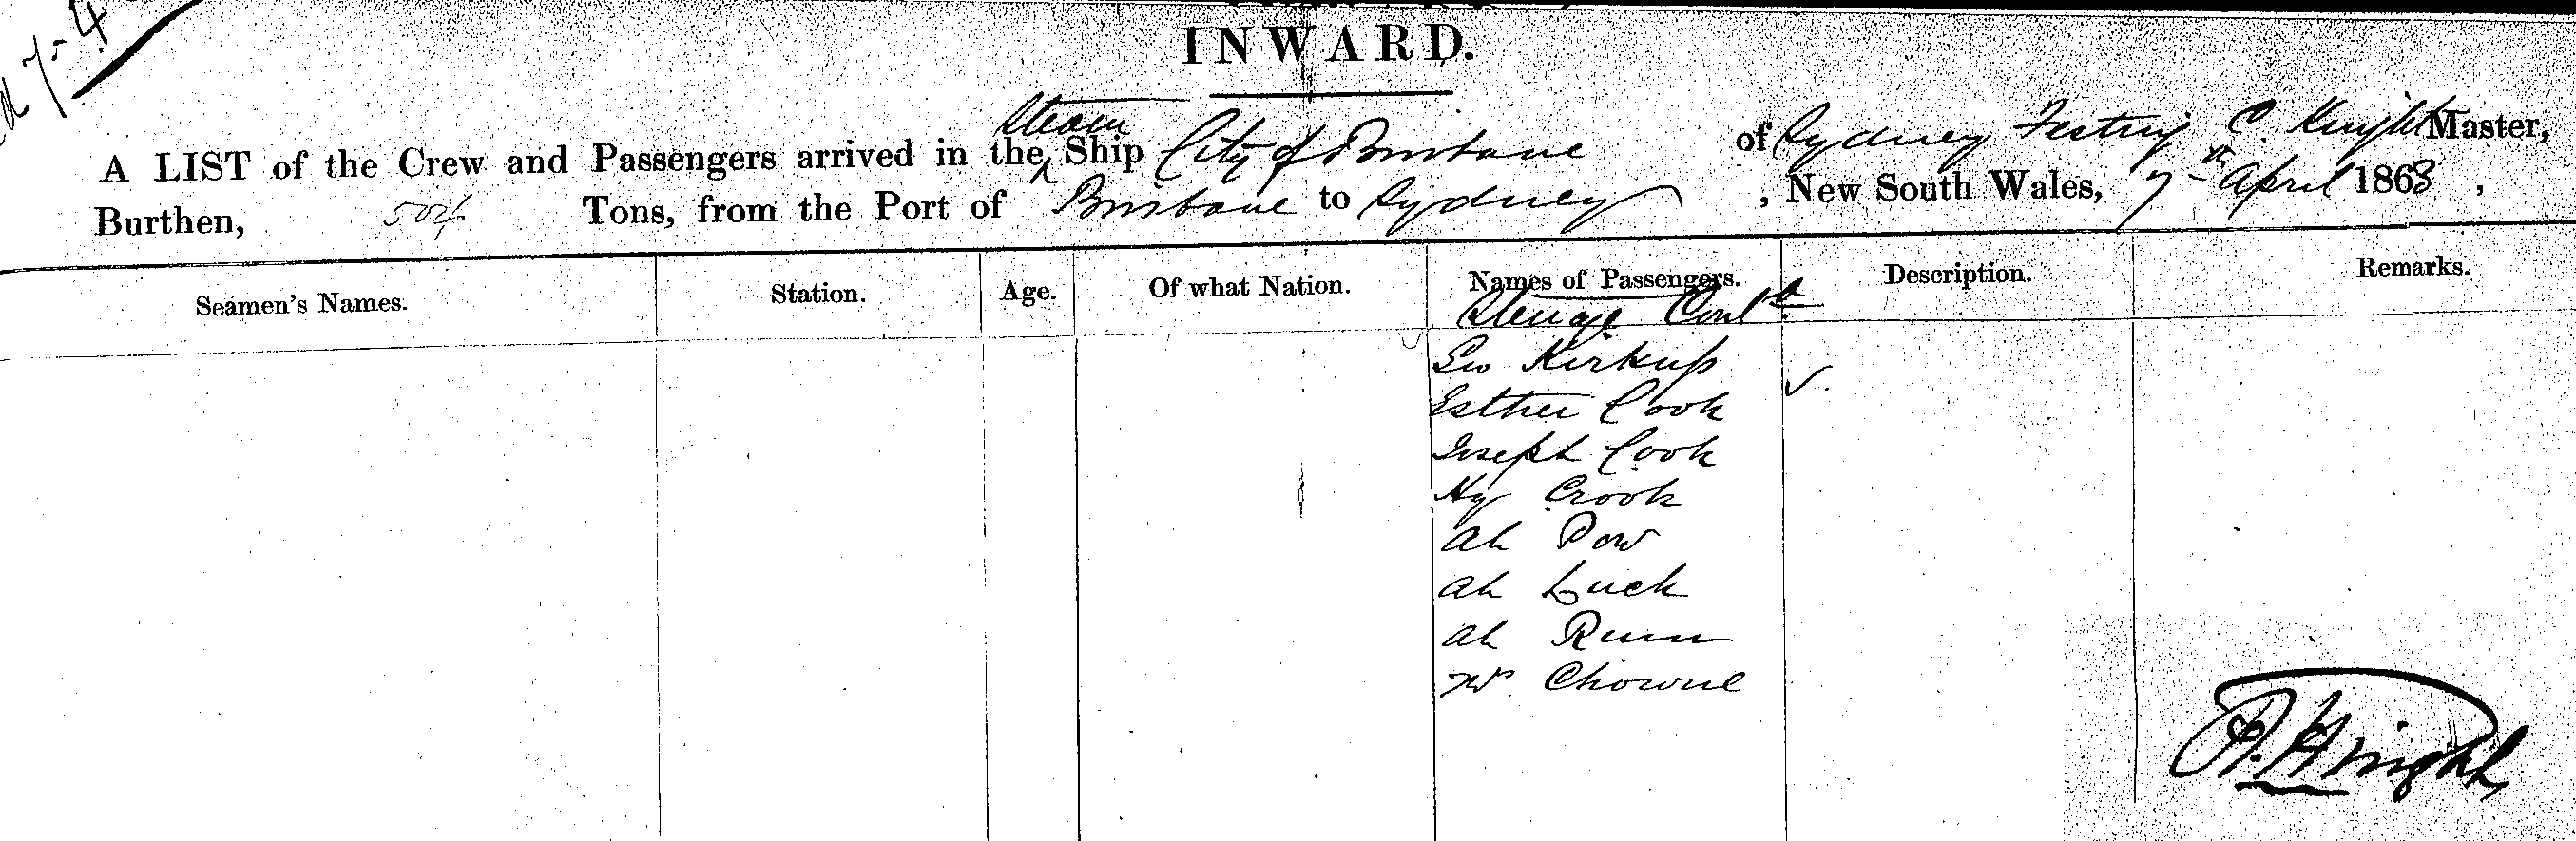 INWARD.
A LIST of the Crew and Passengers arrived in the Steam Ship City of Brisbane of Sydney C. Knight Master,
Burthen, 504 Tons, from the Port of Brisbane to Sydney, New South Wales, 7th April 1868,
Seamen's Names. Station. Age. Of what Nation. Names of Passengers. Description. Remarks.
Steerage Contd
Geo Kirkup
Esther Cook
Joseph Cook
Hy Crook
Ah Pow
Ah Luck
Ah
Mr Chowne
Knight